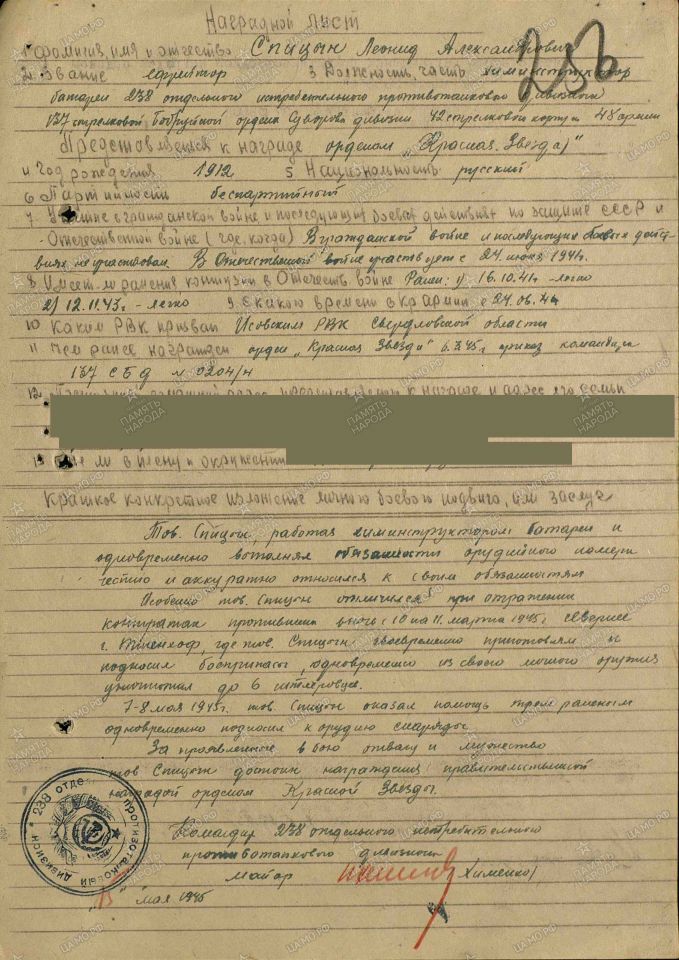 Наградной лист
256
1 Фамилия, имя и отчество Спицын Леонид Александрович
2. Звание ефрейтор 3 Должность, часть химинструктор
батареи 238 отдельного истребительного противотанкового дивизиона
137 стрелковой Бобруйской ордена Суворова дивизии 42 стрелкового корпуса 48 армии
Представляется к награде орденом „Красная Звезда"
4 Год рождения 1912 5 Национальность русский
6 Партийность беспартийный
7 в гражданской войне и последующих боевых действиях по защите СССР и
Отечественной войне (где, когда) В гражданской войне и последующих боевых дейс-
виях не участвовал. В Отечественной войне участвует с 24 июня 1941г.
8 Имеет ли ранения контузии в Отечеств войне Ранен: 1) 16.10.41г -легко
2) 12.11.43г - легко 9. С какого времени в кр Армии с 24.06.41
10 Каким РВК призван Исовским РВК Свердловской области
11 Чем ранее награжден орден „Красная Звезда" 6.3.45г. приказ командира
137 СБД № 020н/н
12 к награде и адрес его семьи
13 ли в плену и окружении
Краткое конкретное изложение личного боевого подвига, или заслуг
Тов. Спицын, работая химинструктором батареи и
одновременно выполняя обязанности орудийного номера
честно и аккуратно относился к своим обязанностям
Особенно тов. Спицын отличился при отражении
контратак противника в ночь с 10 на 11 марта 1945г. севернее
г. где тов. Спицын своевременно приготовлял и
подносил боеприпасы, одновременно из своего личного оружия
уничтожил до 6 гитлеровцев.
7-8 мая 1945г. тов. Спицын оказал помощь трем раненым
одновременно подносил к орудию снаряды.
За проявленные в бою отвагу и мужество
тов Спицын достоин награждения правительственной
наградой орденом Красной Звезды.
Командир 238 отдельного истребительного
противотанкового дивизиона
майор Хименко)
мая 1945
238 отде противотанковый дивизион
ПАМЯТЬ НАРОДА
ЦАМО.РФ